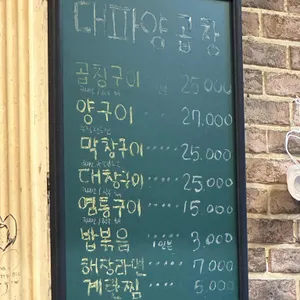 대파양곱창
곱창구이 25,000
양구이 27,000
막창구이 ····· 25,000
대창구이 ····· 25,000
염통구이 ····· 15,000
밥볶음 1인분 3,000
해장라면 ····· 7,000
계란찜 ····· 5,000